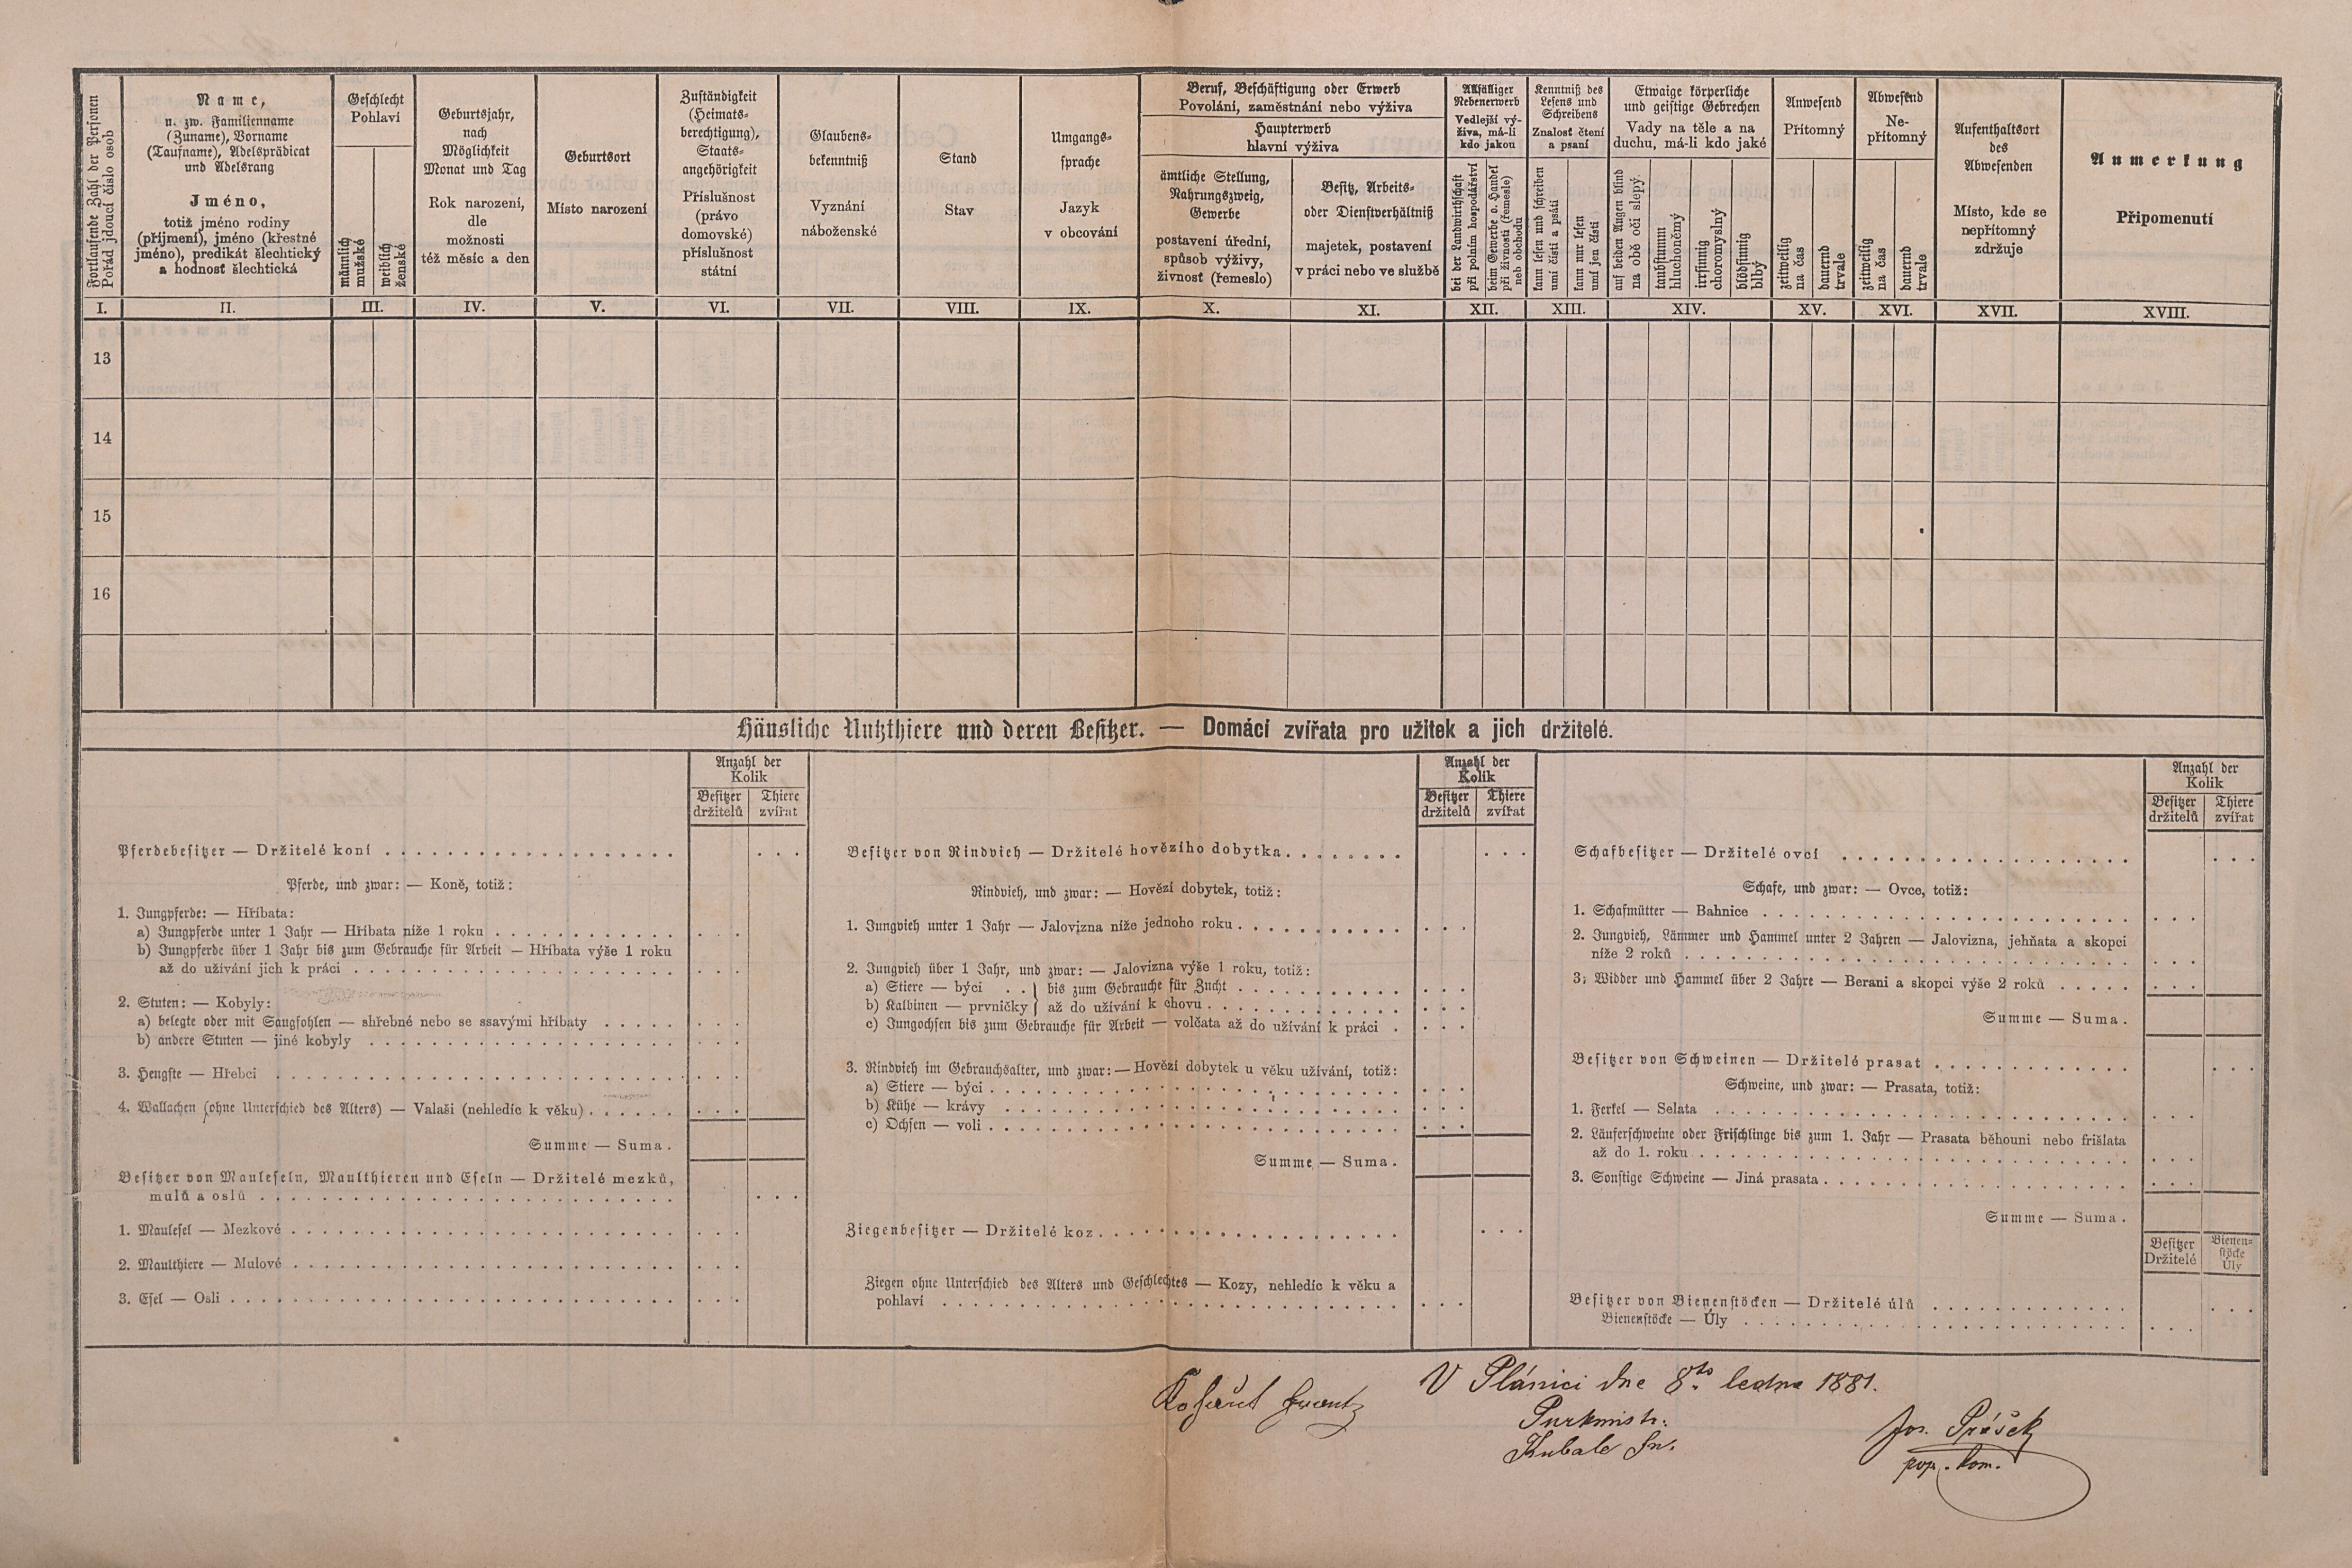 Fortlaufende Zahl der Personen
Pořád jdoucí číslo osob
Name,
u. zw. Familienname
(Zuname), Vorname
(Taufname), Adelsprädicat
und Adelsrang
Jméno,
totiž jméno rodiny
(příjmení), jméno (křestné
jméno), predikát šlechtický
a hodnosť šlechtická
Geschlecht
Pohlaví
männlich
mužské
weiblich
ženské
Geburtsjahr,
nach
Möglichkeit
Monat und Tag
Rok narození,
dle
možnosti
též měsíc a den
Geburtsort
Místo narození
Zuständigkeit
(Heimats-
berechtigung),
Staats-
angehörigkeit
Příslušnost
(právo
domovské)
příslušnost
státní
Glaubens-
bekenntniß
Vyznání
náboženské
Stand
Stav
Umgangs-
sprache
Jazyk
v obcování
Beruf, Beschäftigung oder Erwerb
Povolání, zaměstnání nebo výživa
Haupterwerb
hlavní výživa
ämtliche Stellung,
Nahrungszweig,
Gewerbe
postavení úřední,
spůsob výživy,
živnosť (řemeslo)
Besitz, Arbeits-
oder Dienstverhältniß
majetek, postavení
v práci nebo ve službě
Allfälliger
Nebenerwerb
Vedlejší vý-
živa, má-li
kdo jakou
bei der Landwirthschaft
při polním hospodářství
beim Gewerbe o. Handel
při živnosti (řemesle)
neb obchodu
Kenntniß des
Lesens und
Schreibens
Znalosť čtení
a psaní
kann lesen und schreiben
umí čísti a psáti
kann nur lesen
umí jen čísti
Etwaige körperliche
und geistige Gebrechen
Vady na těle a na
duchu, má-li kdo jaké
auf beiden Augen blind
na obě oči slepý.
taubstumm
hluchoněmý
irrsinnig
choromyslný
blödsinnig
blbý
Anwesend
Přítomný
zeitweilig
na čas
dauernd
trvale
Abwesend
Ne-
přítomný
zeitweilig
na čas
dauernd
trvale
Aufenthaltsort
des
Abwesenden
Místo, kde se
nepřítomný
zdržuje
Anmerkung
Připomenutí
I. II. III. IV. V. VI. VII. VIII. IX. X. XI. XII. XIII. XIV. XV. XVI. XVII. XVIII.
13
14
15
16
Häusliche Nutzthiere und deren Besitzer. — Domácí zvířata pro užitek a jich držitelé.
Anzahl der
Kolik
Besitzer
držitelů
Thiere
zvířat
Pferdebesitzer — Držitelé koní
Pferde, und zwar: — Koně, totiž:
1. Jungpferde: — Hříbata:
a) Jungpferde unter 1 Jahr — Hříbata níže 1 roku
b) Jungpferde über 1 Jahr bis zum Gebrauche für Arbeit — Hříbata výše 1 roku
až do užívání jich k práci
2. Stuten: — Kobyly:
a) belegte oder mit Saugfohlen — shřebné nebo se ssavými hříbaty
b) andere Stuten — jiné kobyly
3. Hengste — Hřebci
4. Wallachen (ohne Unterschied des Alters) — Valaši (nehledíc k věku)
Summe — Suma.
Besitzer von Mauleseln, Maulthieren und Eseln — Držitelé mezků,
mulů a oslů
1. Maulesel — Mezkové
2. Maulthiere — Mulové
3. Esel — Osli
Anzahl der
Kolik
Besitzer
držitelů
Thiere
zvířat
Besitzer von Rindvieh — Držitelé hovězího dobytka
Rindvieh, und zwar: — Hovězí dobytek, totiž:
1. Jungvieh unter 1 Jahr — Jalovizna níže jednoho roku
2. Jungvieh über 1 Jahr, und zwar: — Jalovizna výše 1 roku, totiž:
a) Stiere — býci . . } bis zum Gebrauche für Zucht
b) Kalbinen — prvničky } až do užívání k chovu
c) Jungochsen bis zum Gebrauche für Arbeit — volčata až do užívání k práci
3. Rindvieh im Gebrauchsalter, und zwar: — Hovězí dobytek u věku užívání, totiž:
a) Stiere — býci
b) Kühe — krávy
c) Ochsen — voli
Summe — Suma.
Ziegenbesitzer — Držitelé koz
Ziegen ohne Unterschied des Alters und Geschlechtes — Kozy, nehledíc k věku a
pohlaví
Anzahl der
Kolik
Besitzer
držitelů
Thiere
zvířat
Schafbesitzer — Držitelé ovcí
Schafe, und zwar: — Ovce, totiž:
1. Schafmütter — Bahnice
2. Jungvieh, Lämmer und Hammel unter 2 Jahren — Jalovizna, jehňata a skopci
níže 2 roků
3. Widder und Hammel über 2 Jahre — Berani a skopci výše 2 roků
Summe — Suma.
Besitzer von Schweinen — Držitelé prasat
Schweine, und zwar: — Prasata, totiž:
1. Ferkel — Selata
2. Läuferschweine oder Frischlinge bis zum 1. Jahr — Prasata běhouni nebo frišlata
až do 1. roku
3. Sonstige Schweine — Jiná prasata
Summe — Suma.
Besitzer
Držitelé
Bienen-
stöcke
Úly
Besitzer von Bienenstöcken — Držitelé úlů
Bienenstöcke — Úly
V Plánici dne 8ho ledna 1881.
Purkmistr.
Kubale Fr.
Jos. Prášek
pop. kom.